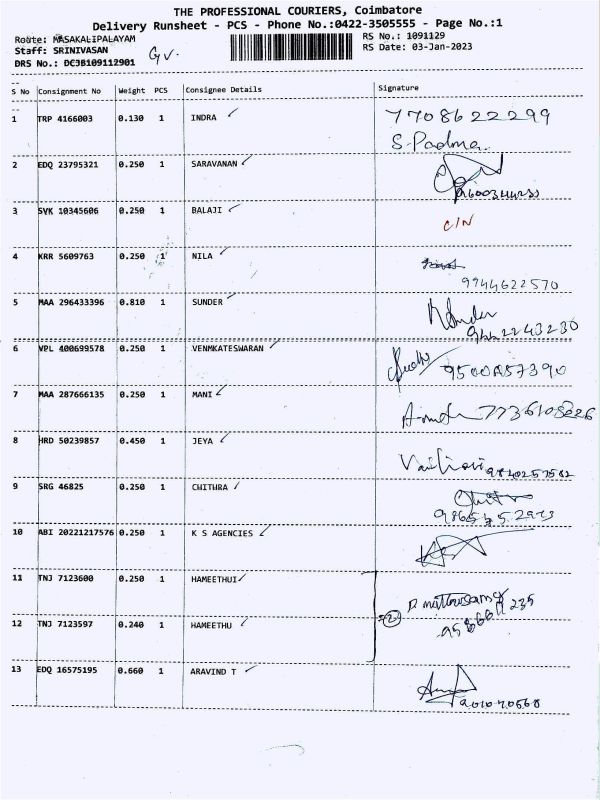 THE PROFESSIONAL COURIERS, Coimbatore
Delivery Runsheet - PCS - Phone No.:0422-3505555 - Page No.:1
Route: MASAKALIPALAYAM
RS No.: 1091129
Staff: SRINIVASAN
RS Date: 03-Jan-2023
DRS No.: DCJB109112901
S No Consignment No Weight PCS Consignee Details Signature
1 TRP 4166003 0.130 1 INDRA 7708622299
S. Padma
2 EDQ 23795321 0.250 1 SARAVANAN
3 SVK 10345606 0.250 1 BALAJI C/N
4 KRR 5609763 0.250 1 NILA
9944622570
5 MAA 296433396 0.810 1 SUNDER
6 VPL 400699578 0.250 1 VENMKATESWARAN
7 MAA 287666135 0.250 1 MANI
8 HRD 50239857 0.450 1 JEYA
9840257582
9 SRG 46825 0.250 1 CHITHRA
10 ABI 20221217576 0.250 1 K S AGENCIES
11 TNJ 7123600 0.250 1 HAMEETHUI
12 TNJ 7123597 0.240 1 HAMEETHU
13 EDQ 16575195 0.660 1 ARAVIND T